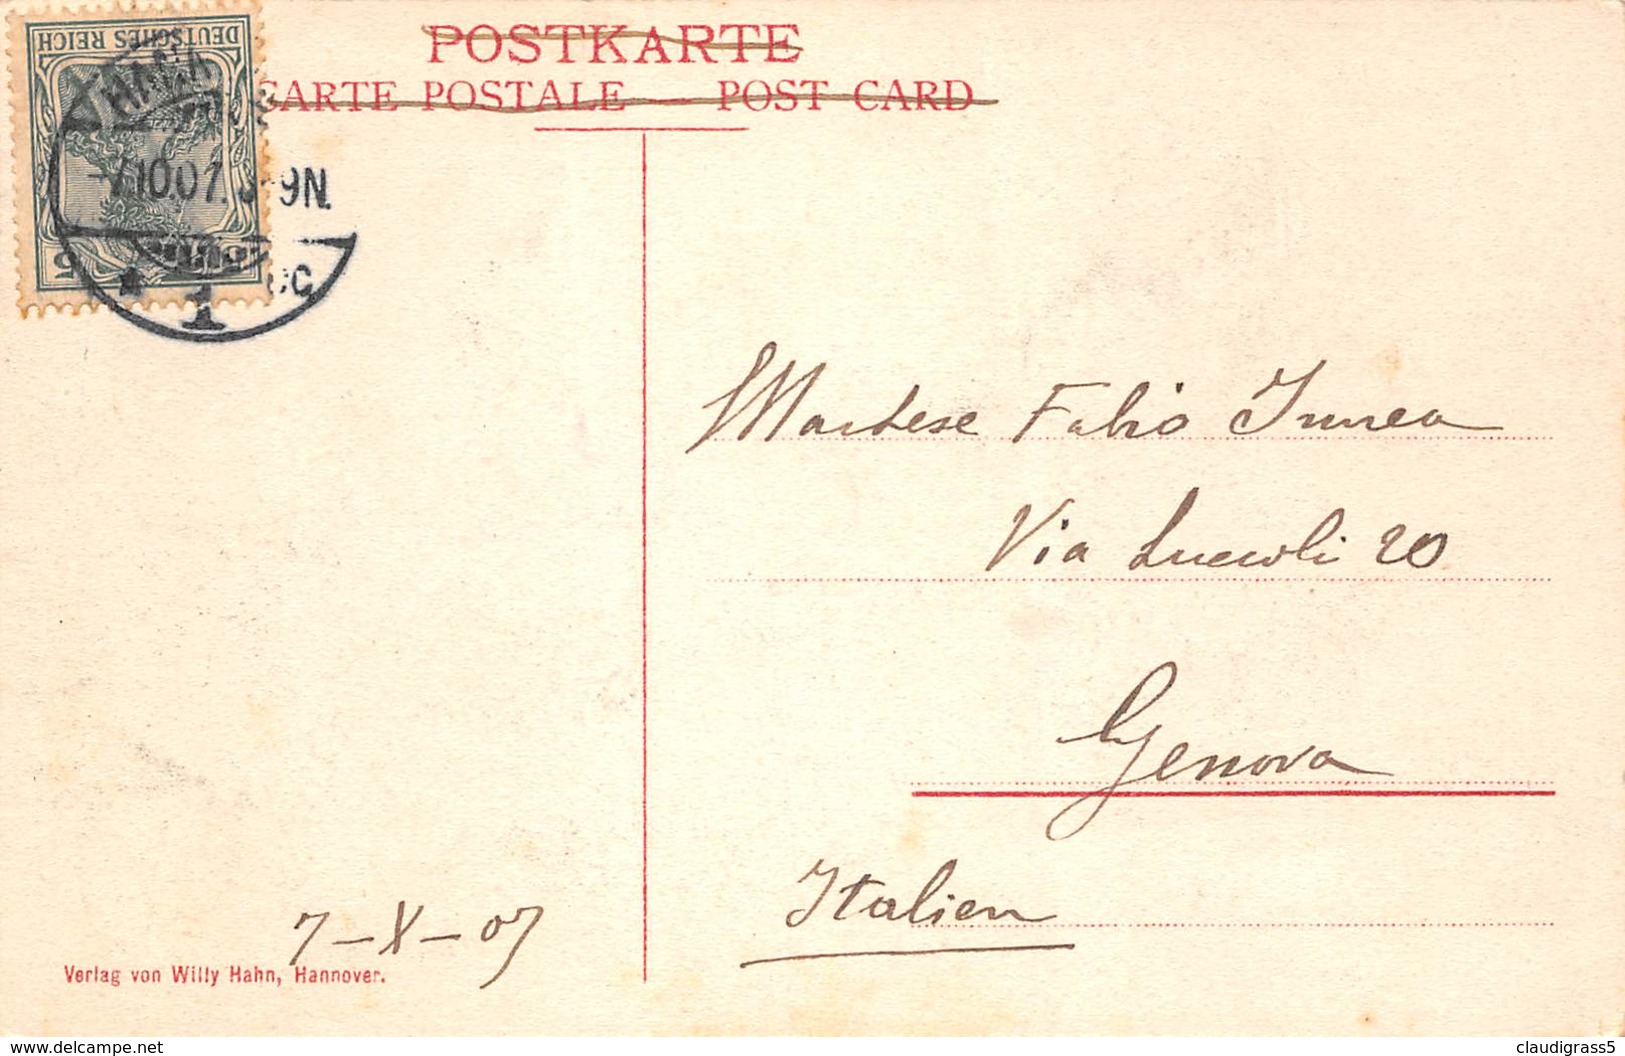 POSTKARTE
CARTE POSTALE — POST CARD
DEUTSCHES REICH
5
10.07. 9N.
1
Fabio
Via Luccoli 20
Genova
Italien
7-X-07
Verlag von Willy Hahn, Hannover.
www.delcampe.net
claudigrass5